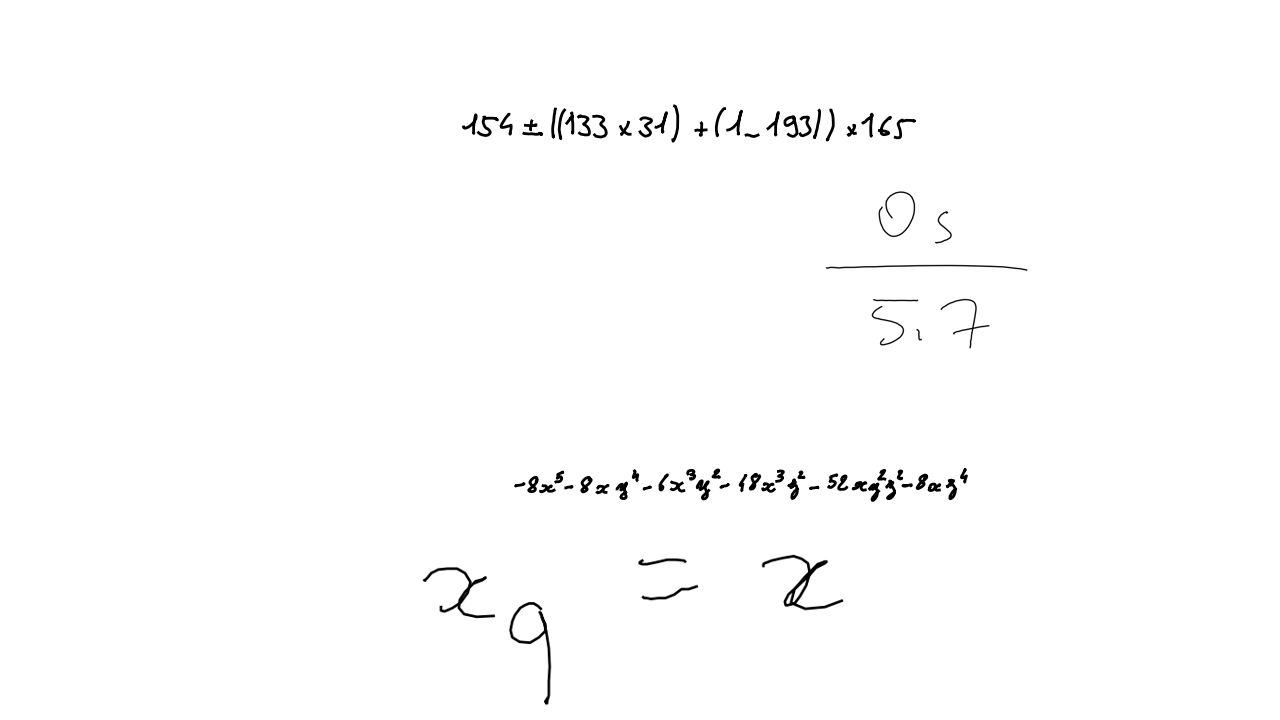 154 ± ((133 × 31) + (1 - 193)) × 165
0s
5.7
-8x⁵ - 8xy⁴ - 6x³y² - 18x³z² - 52xy²z² - 8xz⁴
x₉ = x